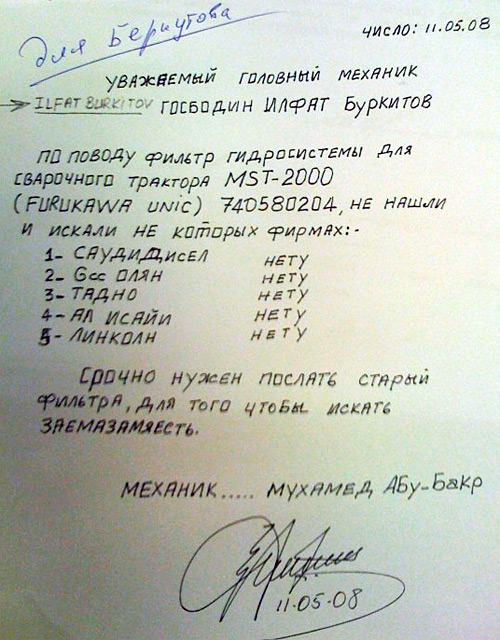 для Беркутова
ЧИСЛО: 11.05.08
УВАЖАЕМЫЙ ГОЛОВНЫЙ МЕХАНИК
ILFAT BURKITOV ГОСБОДИН ИЛФАТ БУРКИТОВ
ПО ПОВОДУ ФИЛЬТР ГИДРОСИСТЕМЫ ДЛЯ
СВАРОЧНОГО ТРАКТОРА MST-2000
(FURUKAWA UNIC) 740580204, НЕ НАШЛИ
И ИСКАЛИ НЕ КОТОРЫХ ФИРМАХ:-
1- САУДИДИСЕЛ НЕТУ
2- GCC ОЛЯН НЕТУ
3- ТАДНО НЕТУ
4- АЛ ИСАЙИ НЕТУ
5- ЛИНКОЛН НЕТУ
СРОЧНО НУЖЕН ПОСЛАТЬ СТАРЫЙ
ФИЛЬТРА, ДЛЯ ТОГО ЧТОБЫ ИСКАТЬ
ЗАЕМАЗАМЯЕСТЬ.
МЕХАНИК..... МУХАМЕД АБУ-БАКР
11.05.08